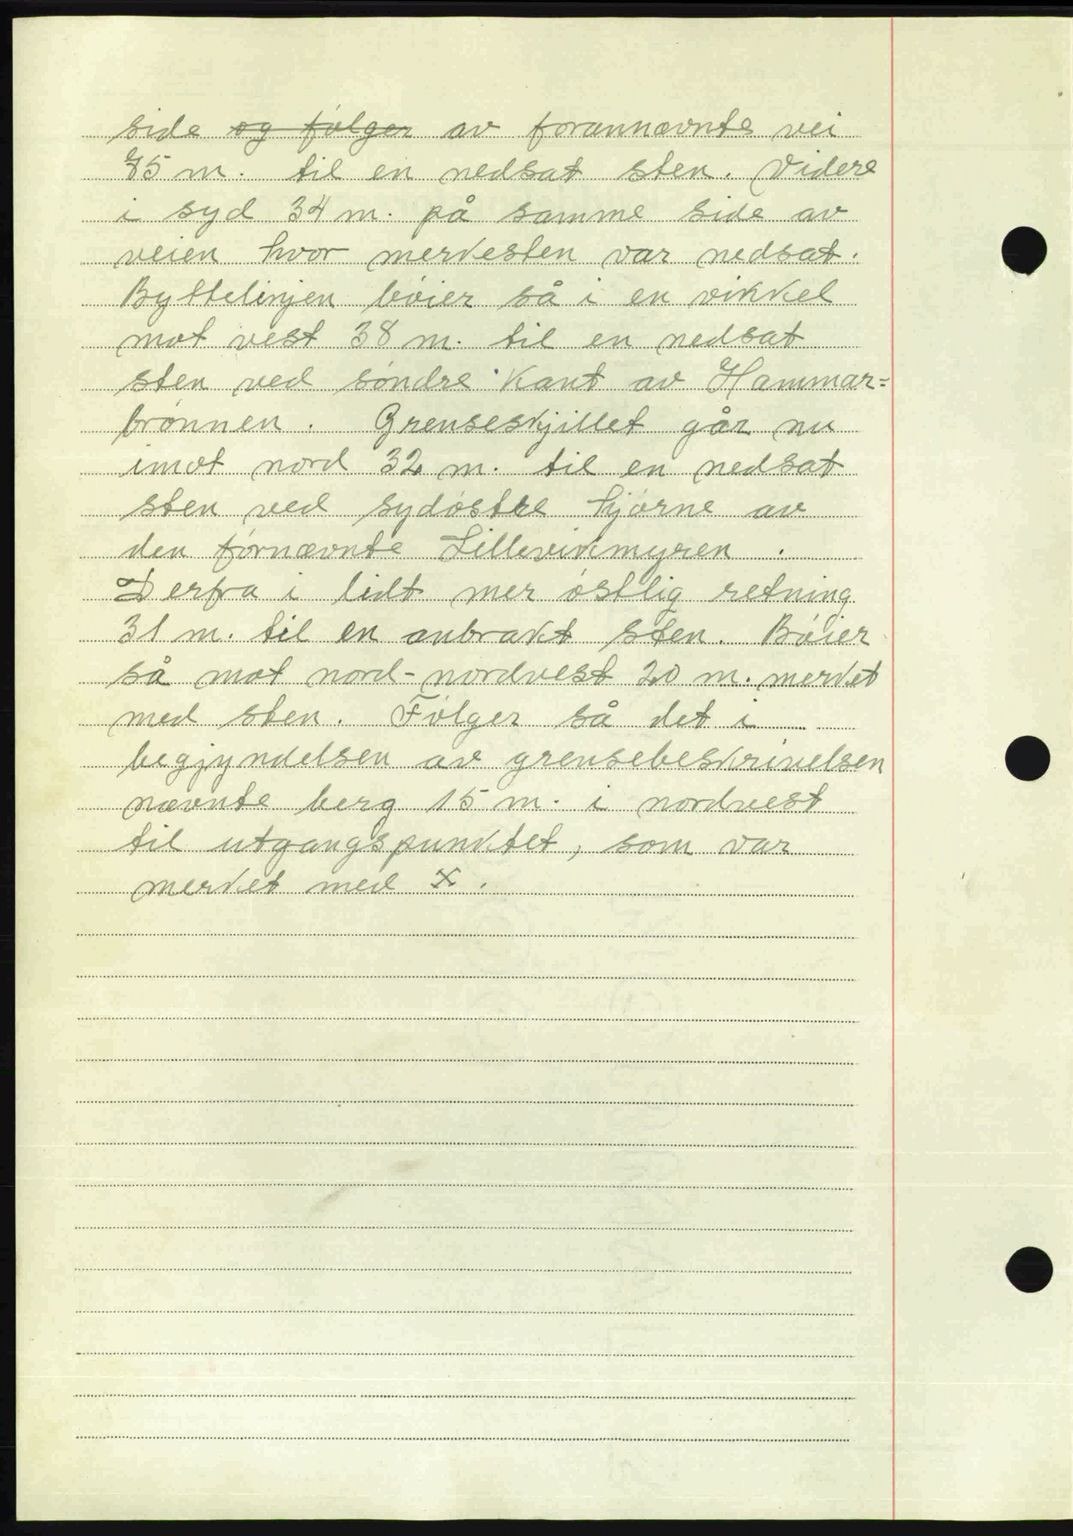 side ~~og følger~~ av forannævnte vei
75 m. til en nedsat sten. Videre
i syd 34 m. på samme side av
veien hvor merkesten var nedsat.
Byttelinjen bøier så i en vinkel
mot vest 38 m. til en nedsat
sten ved søndre kant av Hammar=
brønnen. Grenseskjillet går nu
imot nord 32 m. til en nedsat
sten ved sydøstre hjørne av
den førnævnte Lillevikmyren.
Derfra i lidt mer østlig retning
31 m. til en anbrakt sten. Bøier
så mot nord-nordvest 20 m. merket
med sten. Følger så det i
begjyndelsen av grensebeskrivelsen
nævnte berg 15 m. i nordvest
til utgangspunktet, som var
merket med X.